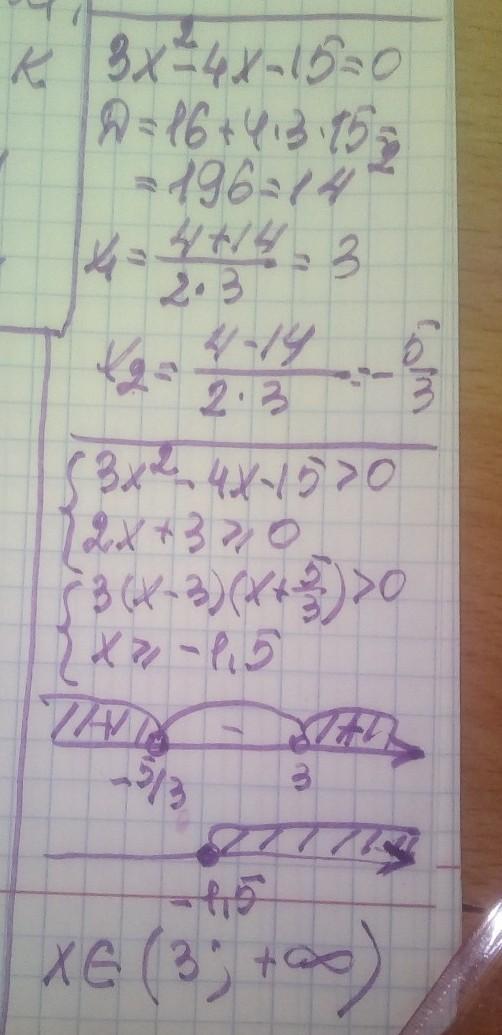 К
3x² - 4x - 15 = 0
Д = 16 + 4·3·15 =
= 196 = 14²
x₁ = (4+14)/(2·3) = 3
x₂ = (4-14)/(2·3) = -5/3
{ 3x² - 4x - 15 > 0
2x + 3 ≥ 0
{ 3(x-3)(x+5/3) > 0
x ≥ -1,5
+ - +
-5/3 3
-1,5
x ∈ (3; +∞)